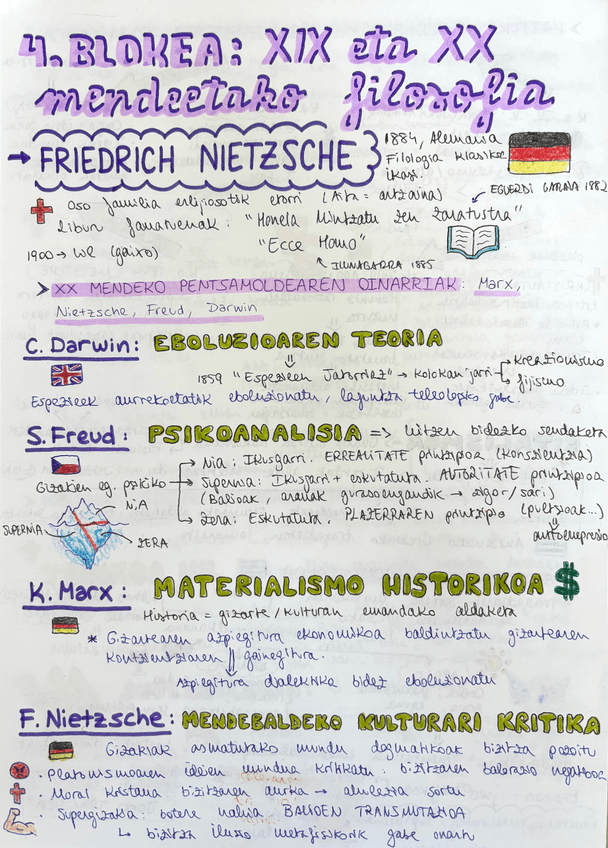 4. BLOKEA: XIX eta XX
mendeetako filosofia
→ FRIEDRICH NIETZSCHE
1884, Alemania
Filologia klasikoa
ikasi.
Oso familia erlijiosotik etorri (Aita = artzaina)
EGUERDI GARAIA 1882
Liburu famatuenak: "Honela Mintzatu zen Zaratustra"
"Ecce Homo"
1900 → hil (gaixo)
ILUNABARRA 1885
➤ XX MENDEKO PENTSAMOLDEAREN OINARRIAK: Marx,
Nietzsche, Freud, Darwin
C. Darwin: EBOLUZIOAREN TEORIA
1859 "Espezieen Jatorriaz" → kolokan jarri → kreazionismo
→ fijismo
Espezieek aurrekoetatik eboluzionatu, laguntza teleologiko gabe.
S. Freud: PSIKOANALISIA => hitzen bidezko sendaketa
Nia: Ikusgarri. ERREALITATE printzipioa (kontzientzia)
Gizakien eg. psikiko
Supernia: Ikusgarri + eskutatua. AUTORITATE printzipioa
(Balioak, arauak gurasoengandik → zigor/sari)
Zera: Eskutatua. PLAZERRAREN printzipio (pultsioak...)
autoerrepresio
NIA
SUPERNIA
ZERA
K. Marx: MATERIALISMO HISTORIKOA $
Historia = gizarte/kulturan emandako aldaketa
* Gizartearen azpiegitura ekonomikoa baldintzatu gizartearen
kontzientziaren gainegitura.
Azpiegitura dialektika bidez eboluzionatu
F. Nietzsche: MENDEBALDEKO KULTURARI KRITIKA
Gizakiak asmatutako mundu dogmatikoak bizitza pozoitu
. Platonismoaren ideien mundua kritikatu. bizitzaren balorazio negatiboa
. Moral kristaua bizitzaren aurka → ahulezia sortu
. Supergizakia: botere nahia, BALIOEN TRANSMUTAZIOA
↳ bizitza ilusio metafisikorik gabe onartu